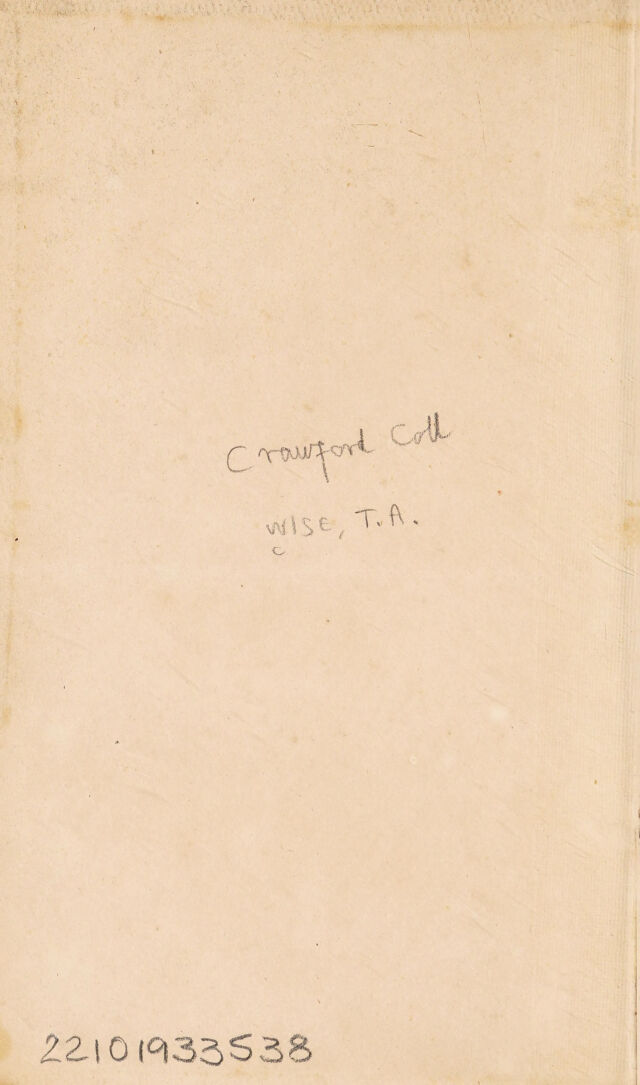 Crawford Coll
WISE, T.A.
c
22101933538